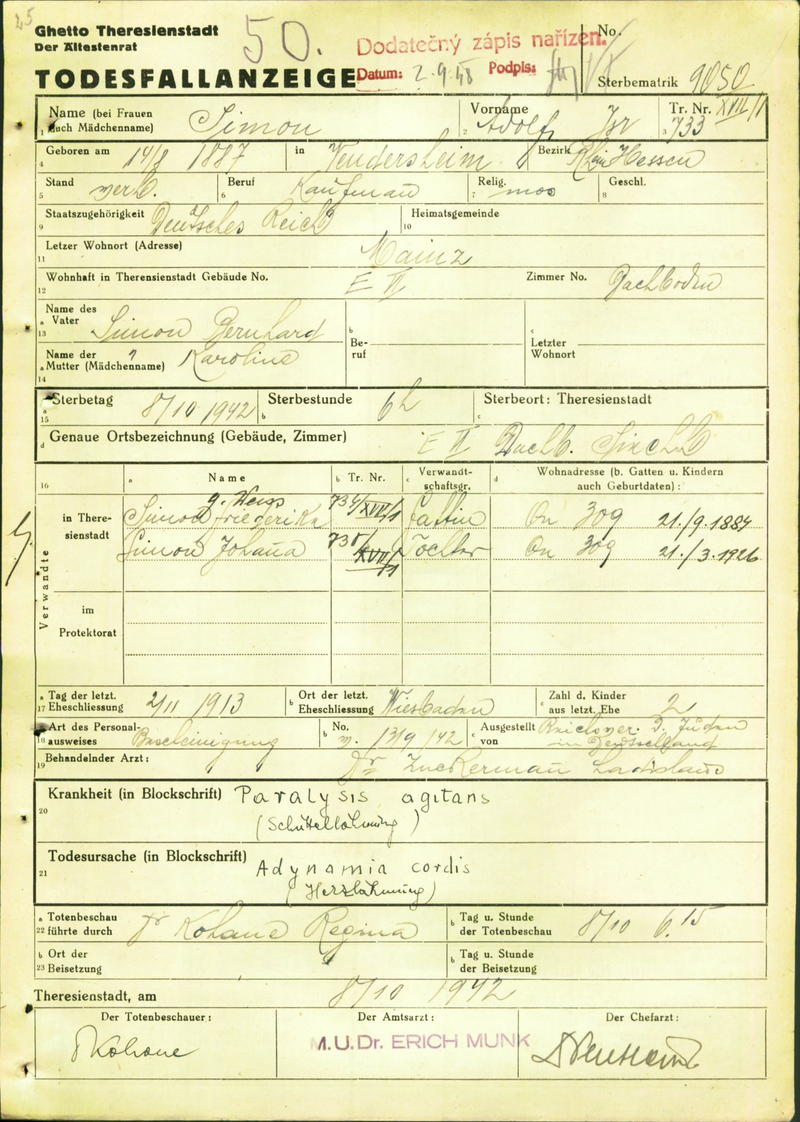 25
Ghetto Theresienstadt
Der Ältestenrat
50.
Dodatečný zápis nařízen.
No.
TODESFALLANZEIGE
Datum: 2.9.48 Podpis:
Sterbematrik 9050
Name (bei Frauen auch Mädchenname) Simon
Vorname Adolf Isr
Tr. Nr. XVII/1 733
1 2 3
Geboren am 14/8 1887 in Vendersheim Bezirk RheinHessen
4
Stand verh. Beruf Kaufman Relig. mos Geschl.
5 6 7 8
Staatszugehörigkeit Deutsches Reich Heimatsgemeinde
9 10
Letzer Wohnort (Adresse) Mainz
11
Wohnhaft in Theresienstadt Gebäude No. E II Zimmer No. Dachboden
12
Name des Vater Simon Bernhard
a 13
b Beruf
c Letzter Wohnort
Name der Mutter (Mädchenname) ? Karoline
a 14
Sterbetag 8/10 1942 Sterbestunde 6h Sterbeort: Theresienstadt
a 15 b c
Genaue Ortsbezeichnung (Gebäude, Zimmer) E II Dachb.
d
16 a Name b Tr. Nr. c Verwandtschaftsgr. d Wohnadresse (b. Gatten u. Kindern auch Geburtdaten) :
Verwandte
in Theresienstadt
Simon Friederika 734/XVII/1 Gattin On 309 21./9.1884
Simon Johana 735/XVII/1 Tochter On 309 21./3.1926
im Protektorat
a 17 Tag der letzt. Eheschliessung 2/11 1913
b Ort der letzt. Eheschliessung Wiesbaden
c Zahl d. Kinder aus letzt. Ehe 2
a 18 Art des Personalausweises Bescheinigung
b No.
c Ausgestellt von Reichsver. d. Juden in Deutschland
Behandelnder Arzt: Dr Zuckerman Ladislaus
19
Krankheit (in Blockschrift) Paralysis agitans
20
(Schüttellähmung)
Todesursache (in Blockschrift) Adynamia cordis
21
(Herzlähmung)
a 22 Totenbeschau führte durch Dr Kohane Regina
b Tag u. Stunde der Totenbeschau 8/10 6.15
b 23 Ort der Beisetzung
b Tag u. Stunde der Beisetzung
Theresienstadt, am 8/10 1942
Der Totenbeschauer: Der Amtsarzt: Der Chefarzt:
RKohane
M.U.Dr. ERICH MUNK